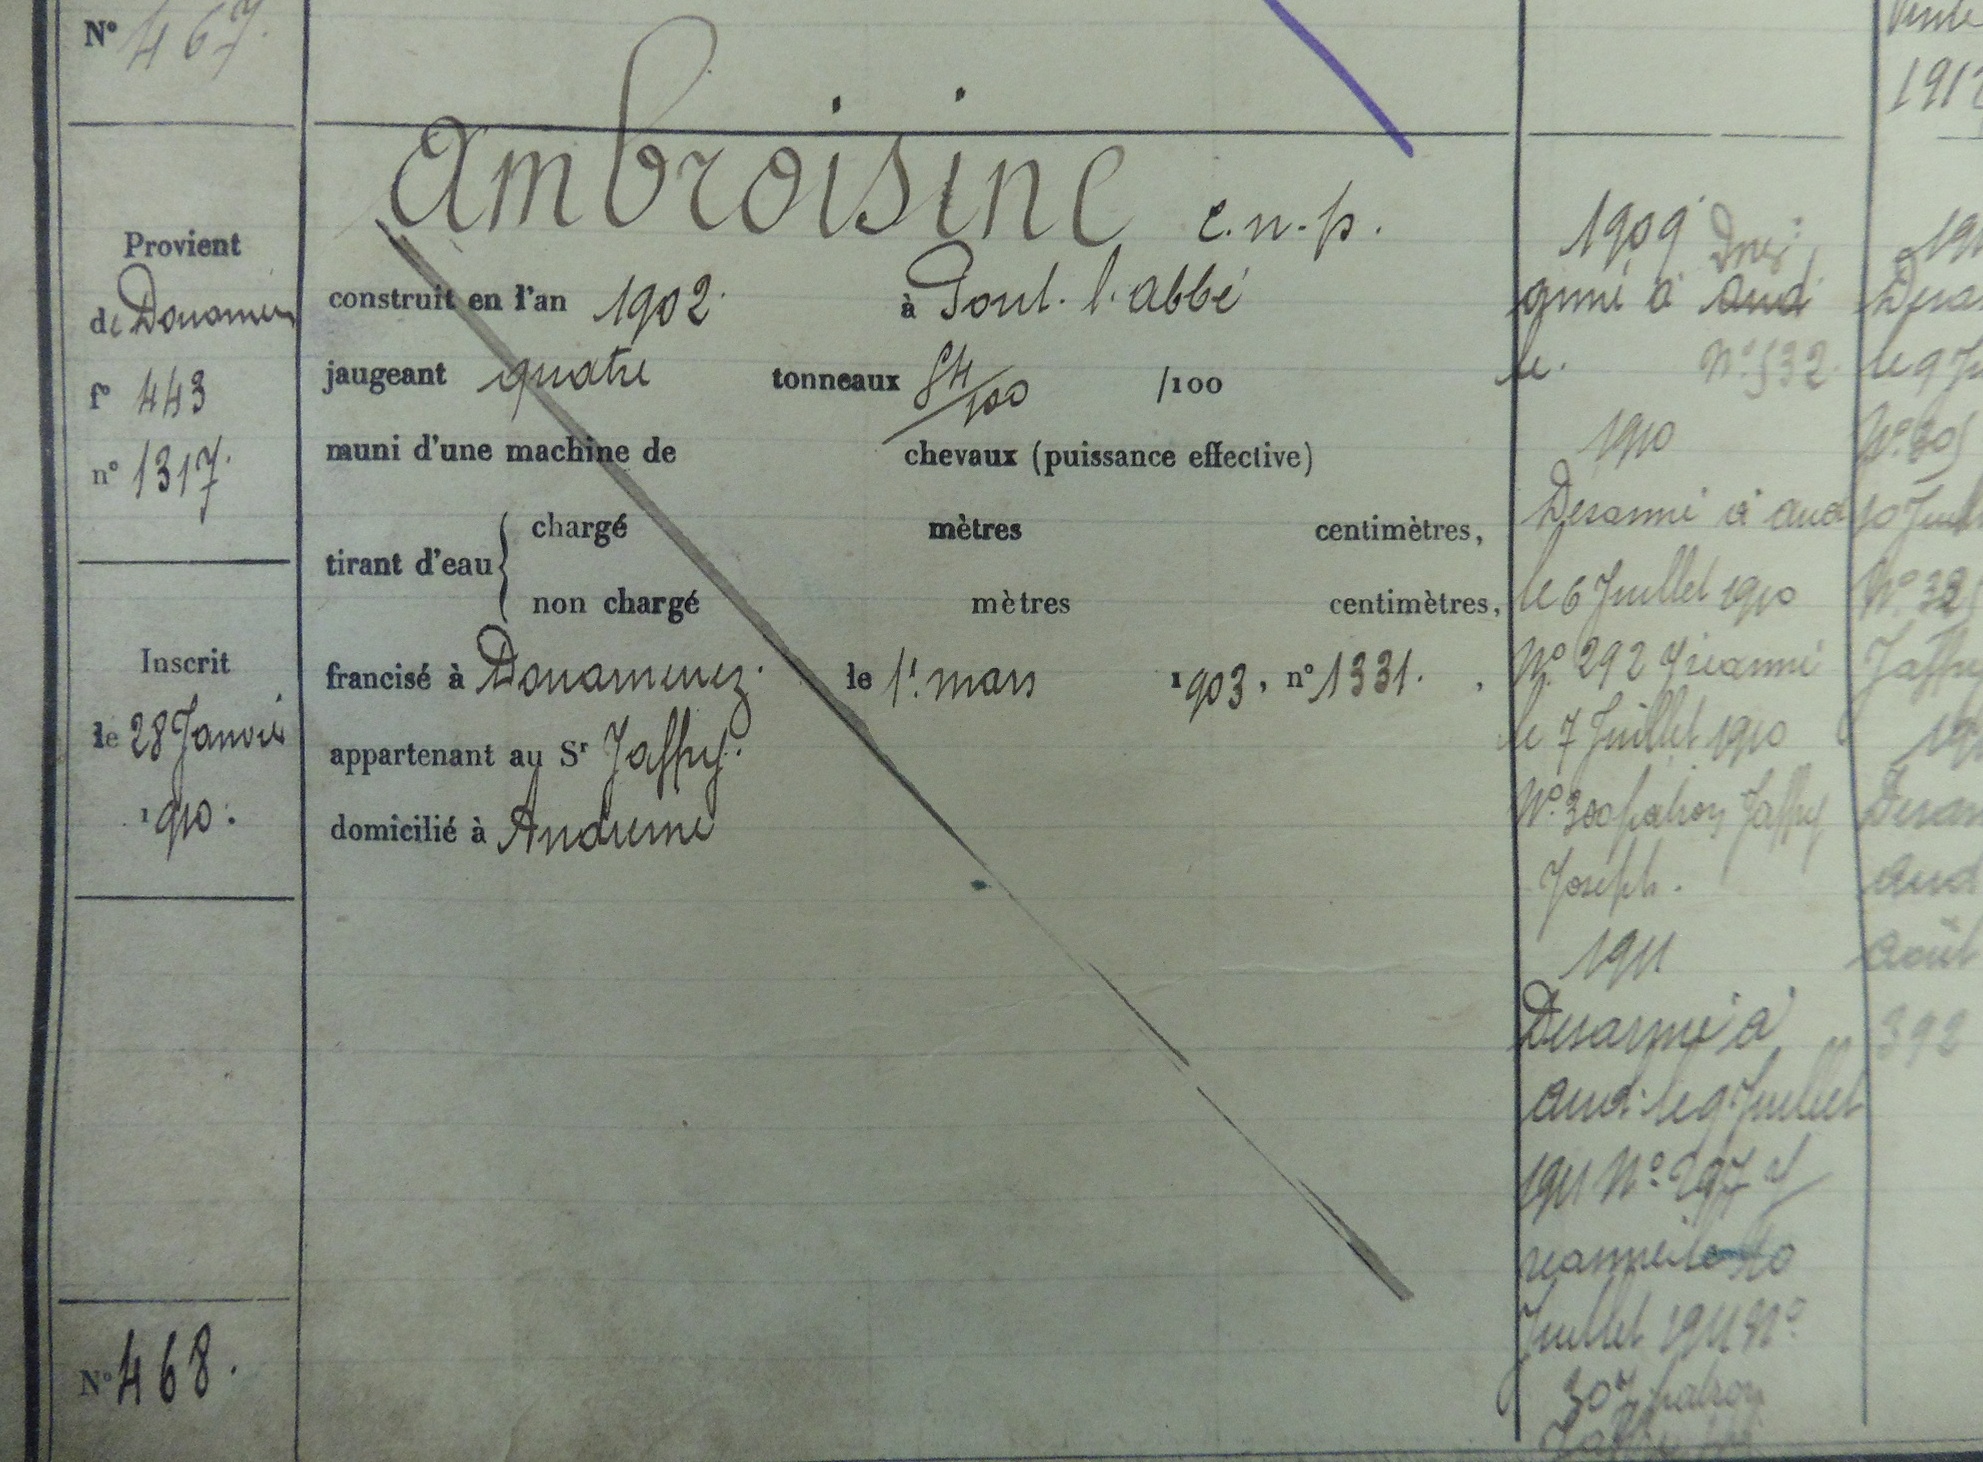 N° 467.
Provient
de Douarnen
f° 443
n° 1317.
Inscrit
le 28 Janvier
1910.
N° 468.
Ambroisine c.n.p.
construit en l'an 1902. à Pont. l'abbé
jaugeant quatre tonneaux 84/100 /100
muni d'une machine de chevaux (puissance effective)
tirant d'eau { chargé mètres centimètres,
non chargé mètres centimètres,
francisé à Douarnenez. le 1r. mars 1903, n° 1331. ,
appartenant au Sr Jaffry.
domicilié à Audierne
1909
armé à Dnez Aud
le. N° 532.
1910
Desarmé à aud
le 6 Juillet 1910
N° 292 & réarmé
le 7 Juillet 1910
N° 300 patron Jaffry
Joseph.
1911
Desarmé à
aud. le 9 Juillet
1911 N° 297 &
rearmé le 10
Juillet 1911 N°
307 patron
Jaffry
Vente
191
191
Desa
le 9 Ju
N° 305
10 Juil
N° 32
Jaffry
19
Desar
aud
août
392